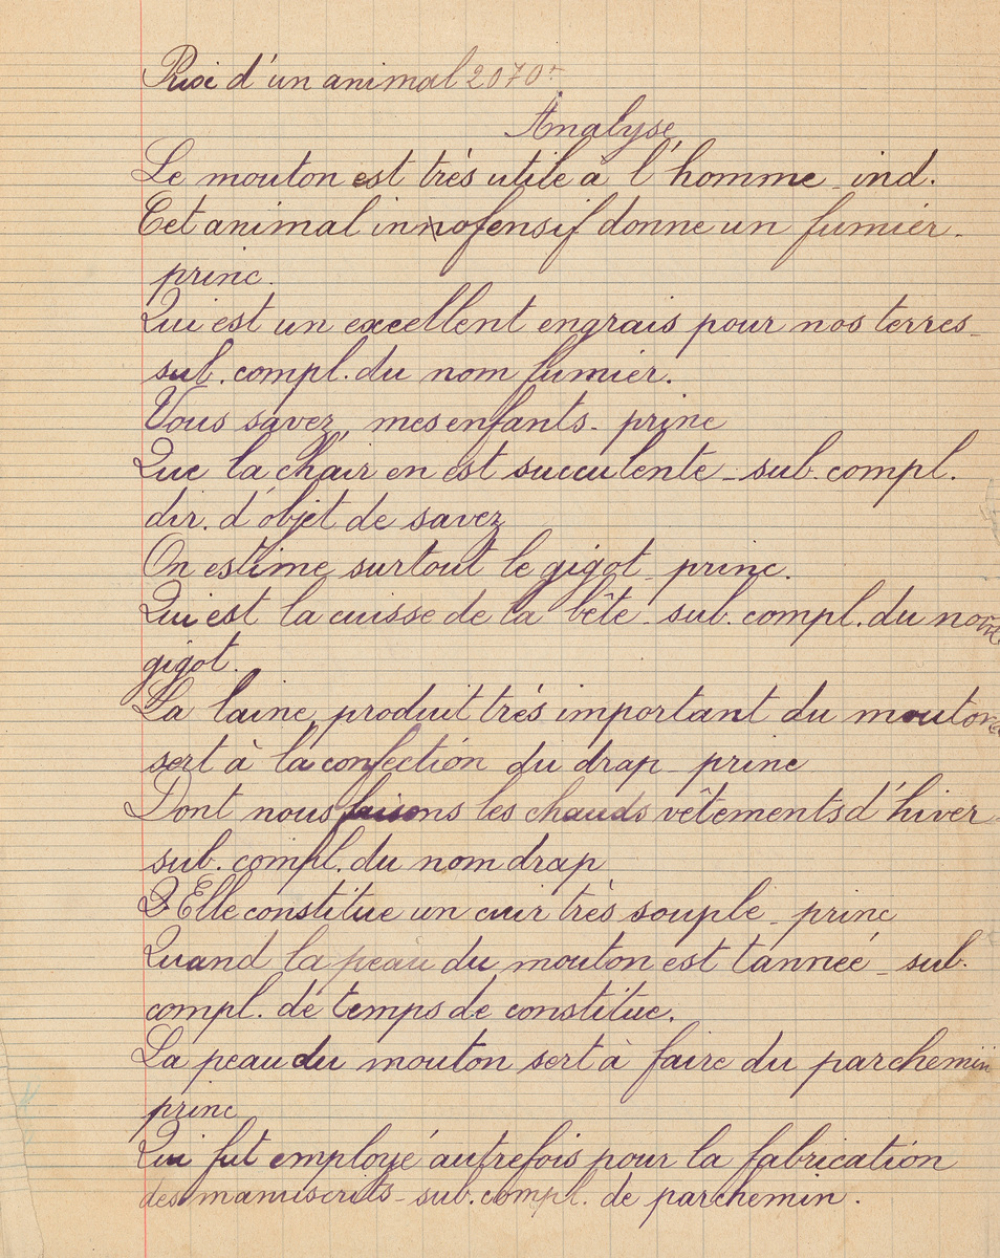 Prix d'un animal 2070f
Analyse
Le mouton est très utile à l'homme - ind.
Cet animal innofensif donne un fumier -
princ.
Qui est un excellent engrais pour nos terres -
sub. compl. du nom fumier.
Vous savez, mes enfants - princ
Que la chair en est succulente - sub. compl.
dir. d'objet de savez
On estime surtout le gigot - princ.
Qui est la cuisse de la bête - sub. compl. du nom
gigot.
La laine, produit très important du mouton
sert à la confection du drap - princ
Dont nous faisons les chauds vêtements d'hiver -
sub. compl. du nom drap
Elle constitue un cuir très souple - princ
Quand la peau du mouton est tannée - sub.
compl. de temps de constitue.
La peau du mouton sert à faire du parchemin
princ
Qui fut employé autrefois pour la fabrication
des manuscrits - sub. compl. de parchemin.